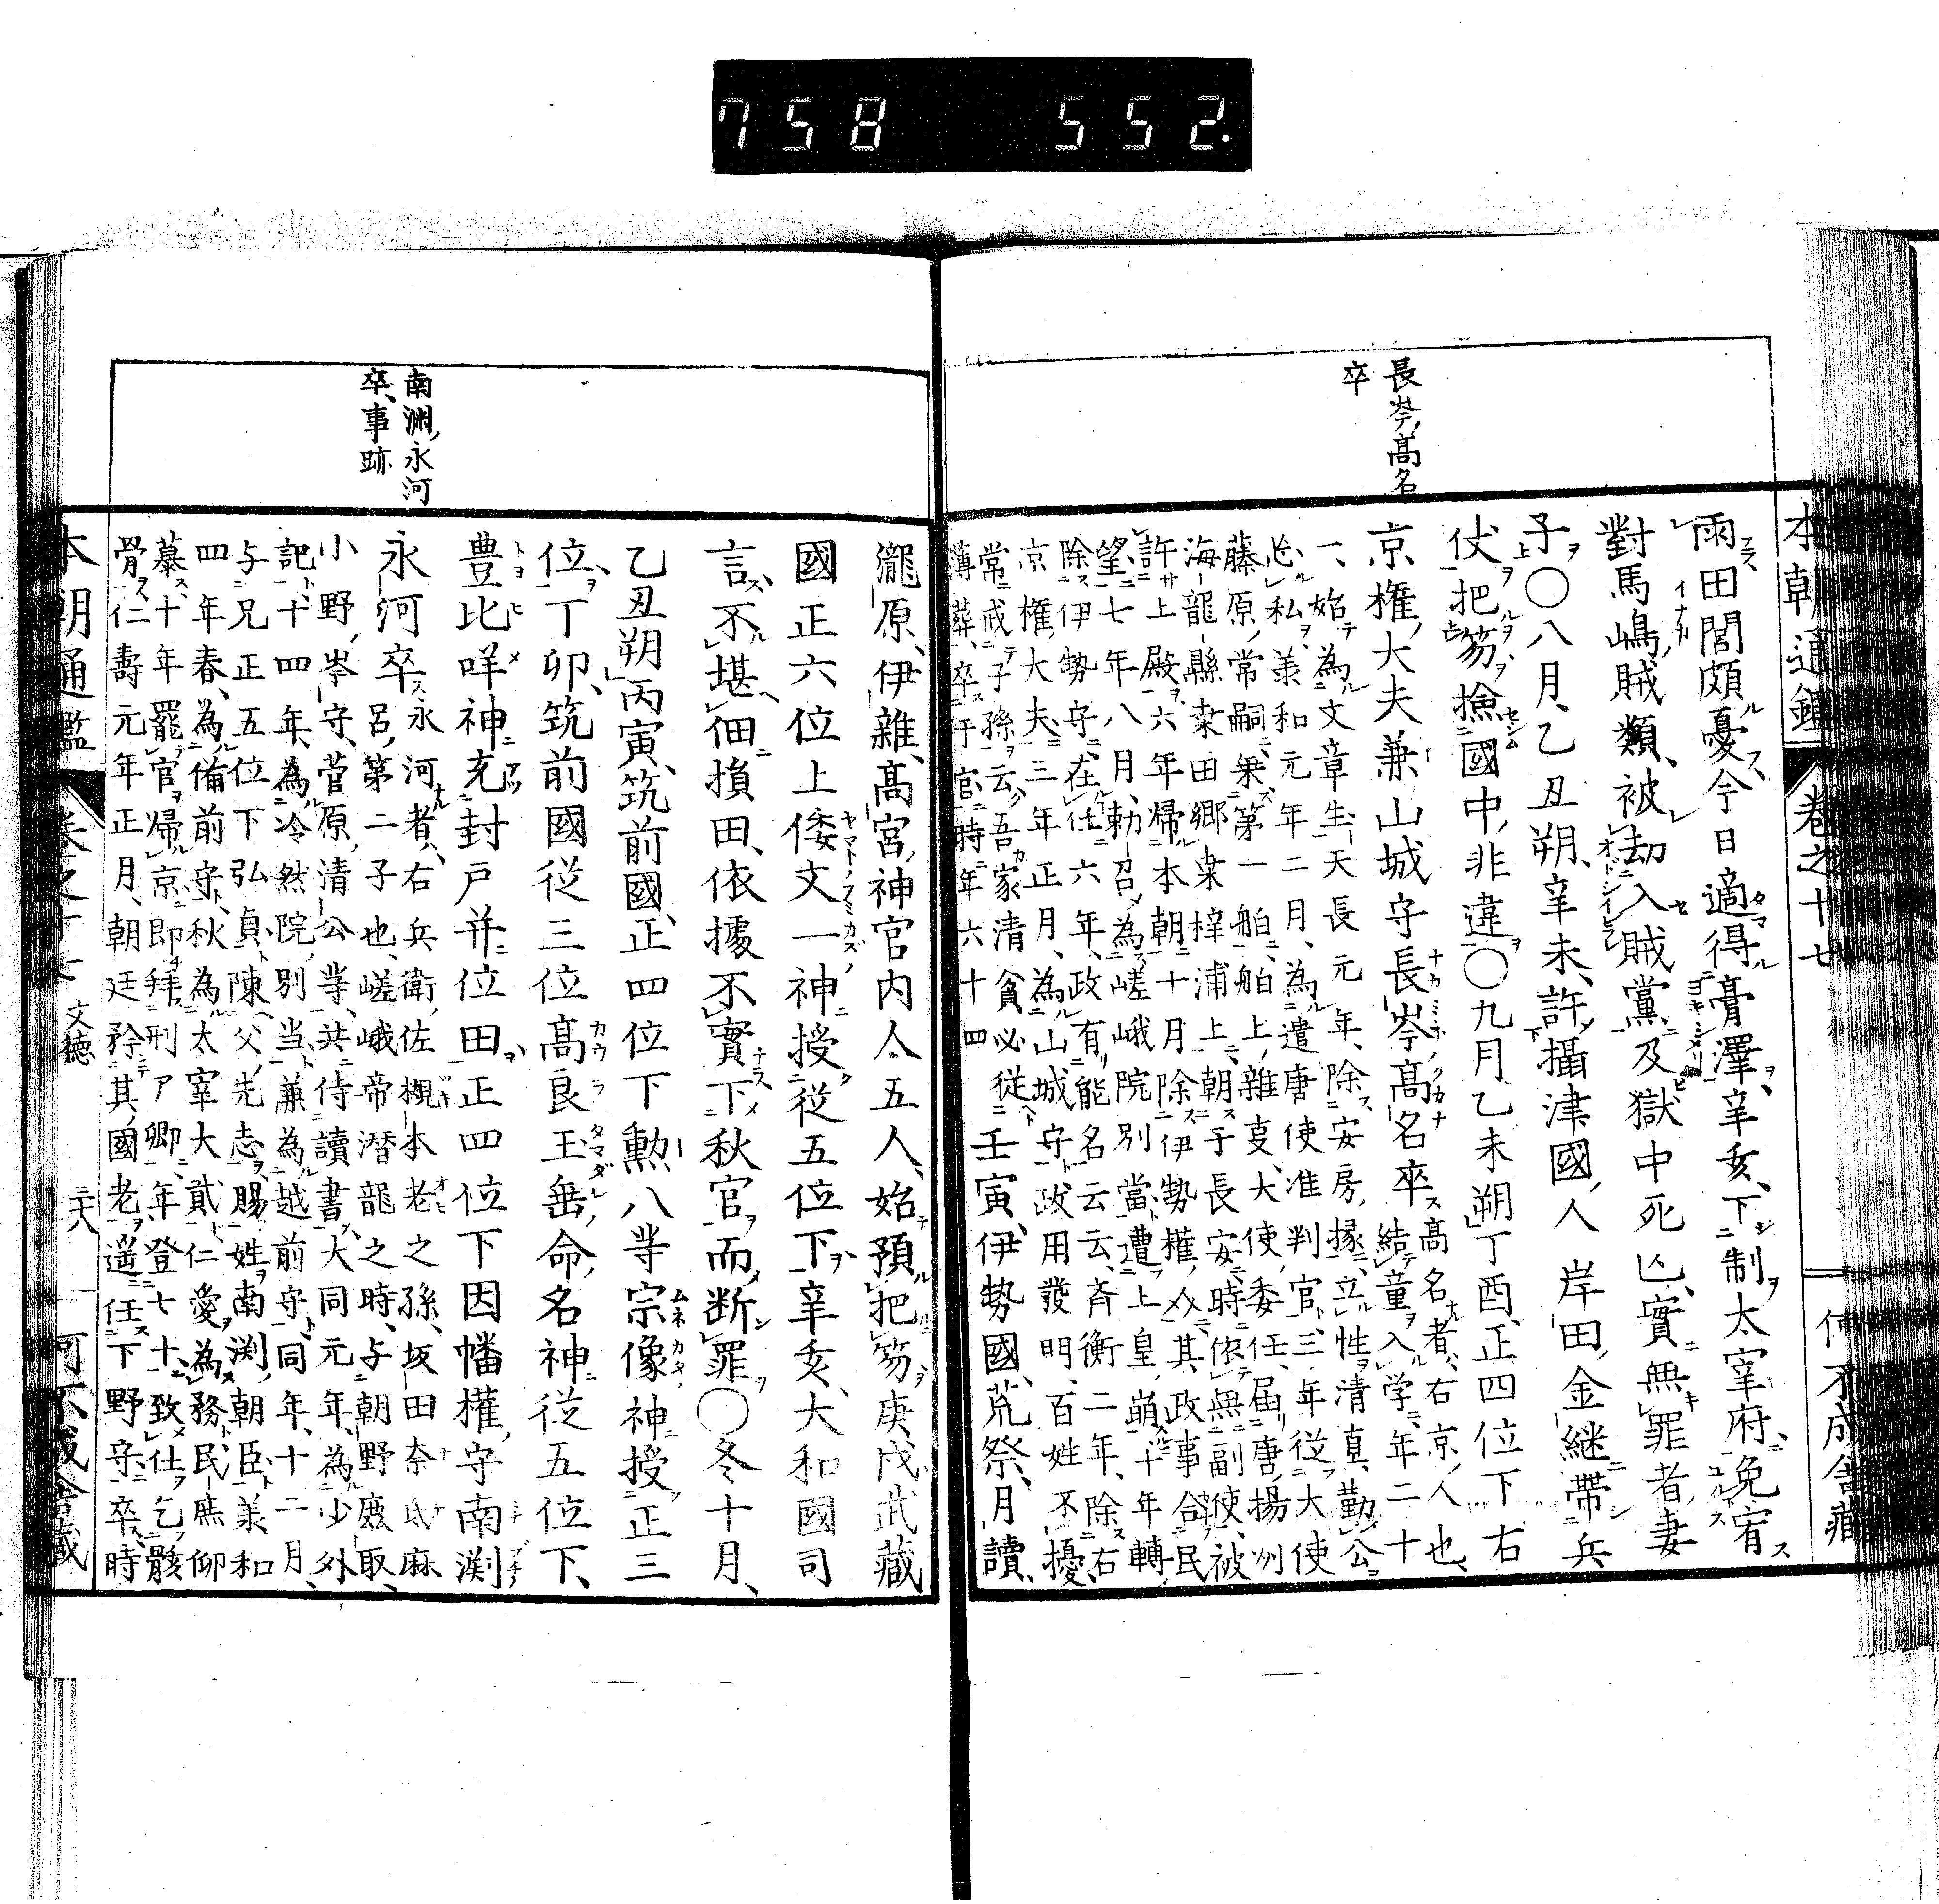 758 552.
本朝通鑑 卷之十七 何不成舎藏
長岑高名
卒
雨田閭頗憂今日適得膏澤辛亥下制太宰府免宥
對馬嶋賊類被刧入賊黨及獄中死亾實無罪者妻
子○八月乙丑朔辛未許攝津國人岸田金継帶兵
仗把笏撿國中非違○九月乙未朔丁酉正四位下右
京權大夫兼山城守長岑高名卒
高名者右京人也
結童入学年二十
一始為文章生天長元年除安房掾立性清直勤公
忘私羕和元年二月為遣唐使准判官三年從大使
藤原常嗣乗第一舶舶上雜叓大使委任届唐揚州
海龍縣桒田鄉桒梓浦上朝于長安時依無副使被
許上殿六年帰本朝十月除伊勢權介其政事合民
望七年八月勅召為嵯峨院別當遭上皇崩十年轉
除伊勢守在任六年政有能名云云斉衡二年除右
京權大夫三年正月為山城守政用發明百姓不擾
常戒子孫云吾家清貧必從
薄葬卒于官時年六十四
壬寅伊勢國荒祭月讀
瀧原伊雜高宮神官内人五人始預把笏庚戌武藏
國正六位上倭文一神授從五位下辛亥大和國司
言不堪佃損田依據不實下秋官而断罪○冬十月
乙丑朔丙寅筑前國正四位下勲八等宗像神授正三
位丁卯筑前國從三位高良玉垂命名神從五位下
豊比咩神充封戸并位田正四位下因幡權守南渕
永河卒
永河者右兵衛佐槻本老之孫坂田奈氐麻
呂第二子也嵯峨帝潜龍之時与朝野鹿取
小野岑守菅原清公等共侍讀書大同元年為少外
記十四年為冷然院別当兼為越前守同年十二月
与兄正五位下弘貞陳父先志賜姓南渕朝臣羕和
四年春為備前守秋為太宰大貳仁愛為務民庶仰
慕十年罷官帰京即拜刑ア卿年登七十致仕乞骸
骨仁壽元年正月朝廷矜其國老遥任下野守卒時
南渊永河
卒事跡
本朝通鑑 卷之十七 文徳 二十八 何不成舎藏